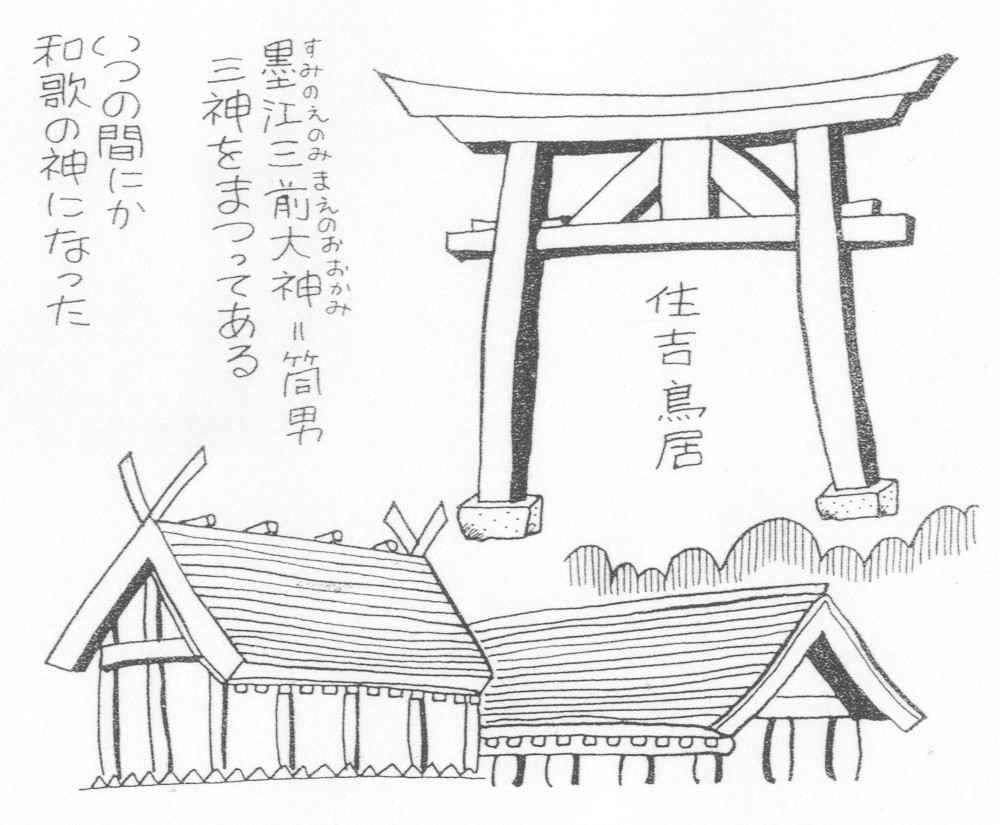 住吉鳥居
すみのえのみまえのおおかみ
墨江三前大神=筒男
三神をまつってある
いつの間にか
和歌の神になった